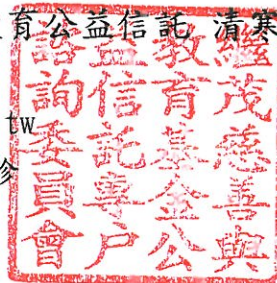 育公益信託 清寒
tw
繼茂慈善與
教育基金公
益信託專戶
諮詢委員會